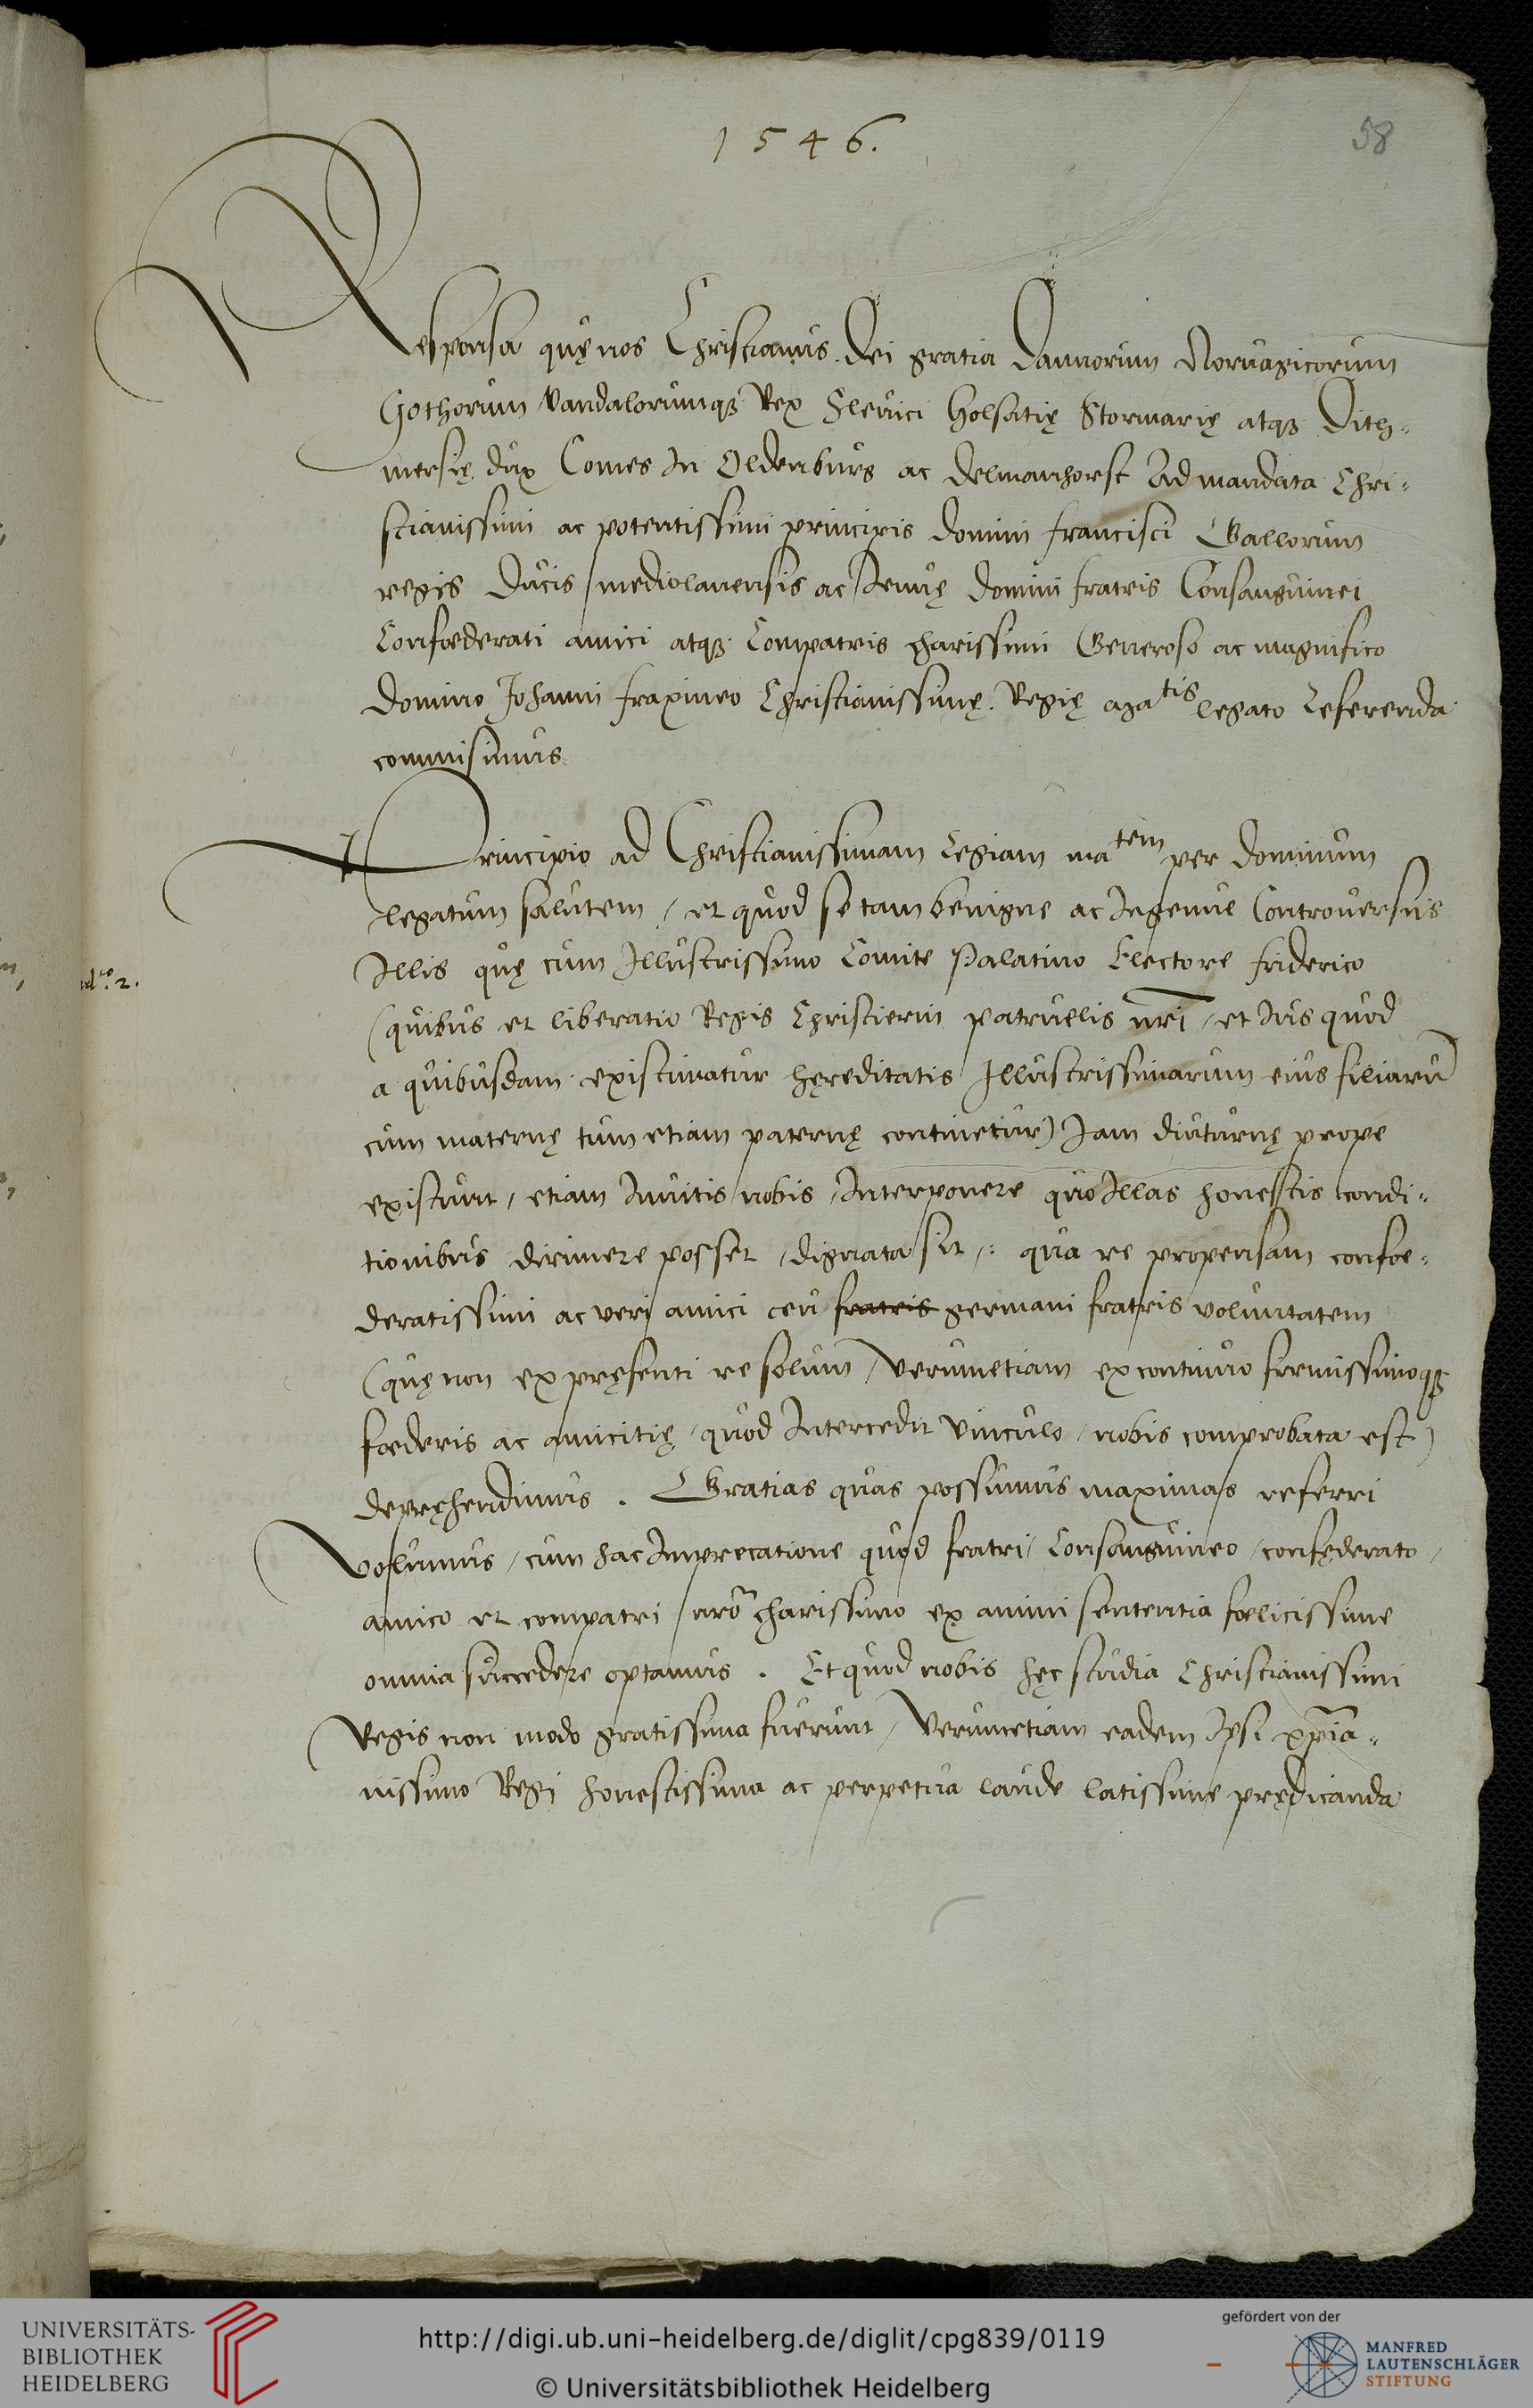 1546.
58
Responsa quę nos Christianus Dei gratia Dannorum Noruagicorum
Gothorum Vandalorumqʒ Rex Sleuici Holsatię Stormarię atqʒ Dith-
mersię dux Comes In Oldenburg ac Delmanhorst Ad mandata Chri-
stianissimi ac potentissimi principis domini Francisci Gallorum
regis Ducis mediolanensis ac Jenuę domini fratris Consanguinei
Confœderati amici atqʒ Compatris charissimi Generoso ac magnifico
domino Johanni fraxineo Christianissimę Regię matis legato Referenda
commisimus
Principio ad Christianissimam Regiam matem per dominum
legatum salutem, et quod se tam benigne ac Ingenue Controuersiis
Illis quę cum Illustrissimo Comite Palatino Electore Friderico
(quibus et liberatio Regis Christierni patruelis nri, et Ius quod
a quibusdam existimatur hęreditatis Illustrissimarum eius filiarū
cum maternę tum etiam paternę continetur) Iam diuturnę prope
existunt, etiam Inuitis nobis, Interponere quo Illas honestis condi-
tionibus dirimere posset, dignata sit,: qua re propensam confœ-
deratissimi ac veri amici ceu fratris germani fratris voluntatem
(quę non ex pręsenti re solum, Verumetiam ex continuo firmissimoqʒ
fœderis ac amicitię, quod Intercedit Vinculo, nobis comprobata est)
depręhendimus. Gratias quas possumus maximas referri
Volumus, cum hac Imprecatione quod fratri, Consanguineo, confęderato,
amico et compatri nrō charissimo ex animi sententia fœlicissime
omnia succedere optamus. Et quod nobis hęc studia Christianissimi
Regis non modo gratissima fuerunt, Verumetiam eadem Ipsi xpīa-
nissimo Regi honestissima ac perpetua laude latissime prędicanda
UNIVERSITÄTS-
BIBLIOTHEK
HEIDELBERG
http://digi.ub.uni-heidelberg.de/diglit/cpg839/0119
© Universitätsbibliothek Heidelberg
gefördert von der
MANFRED
LAUTENSCHLÄGER
STIFTUNG